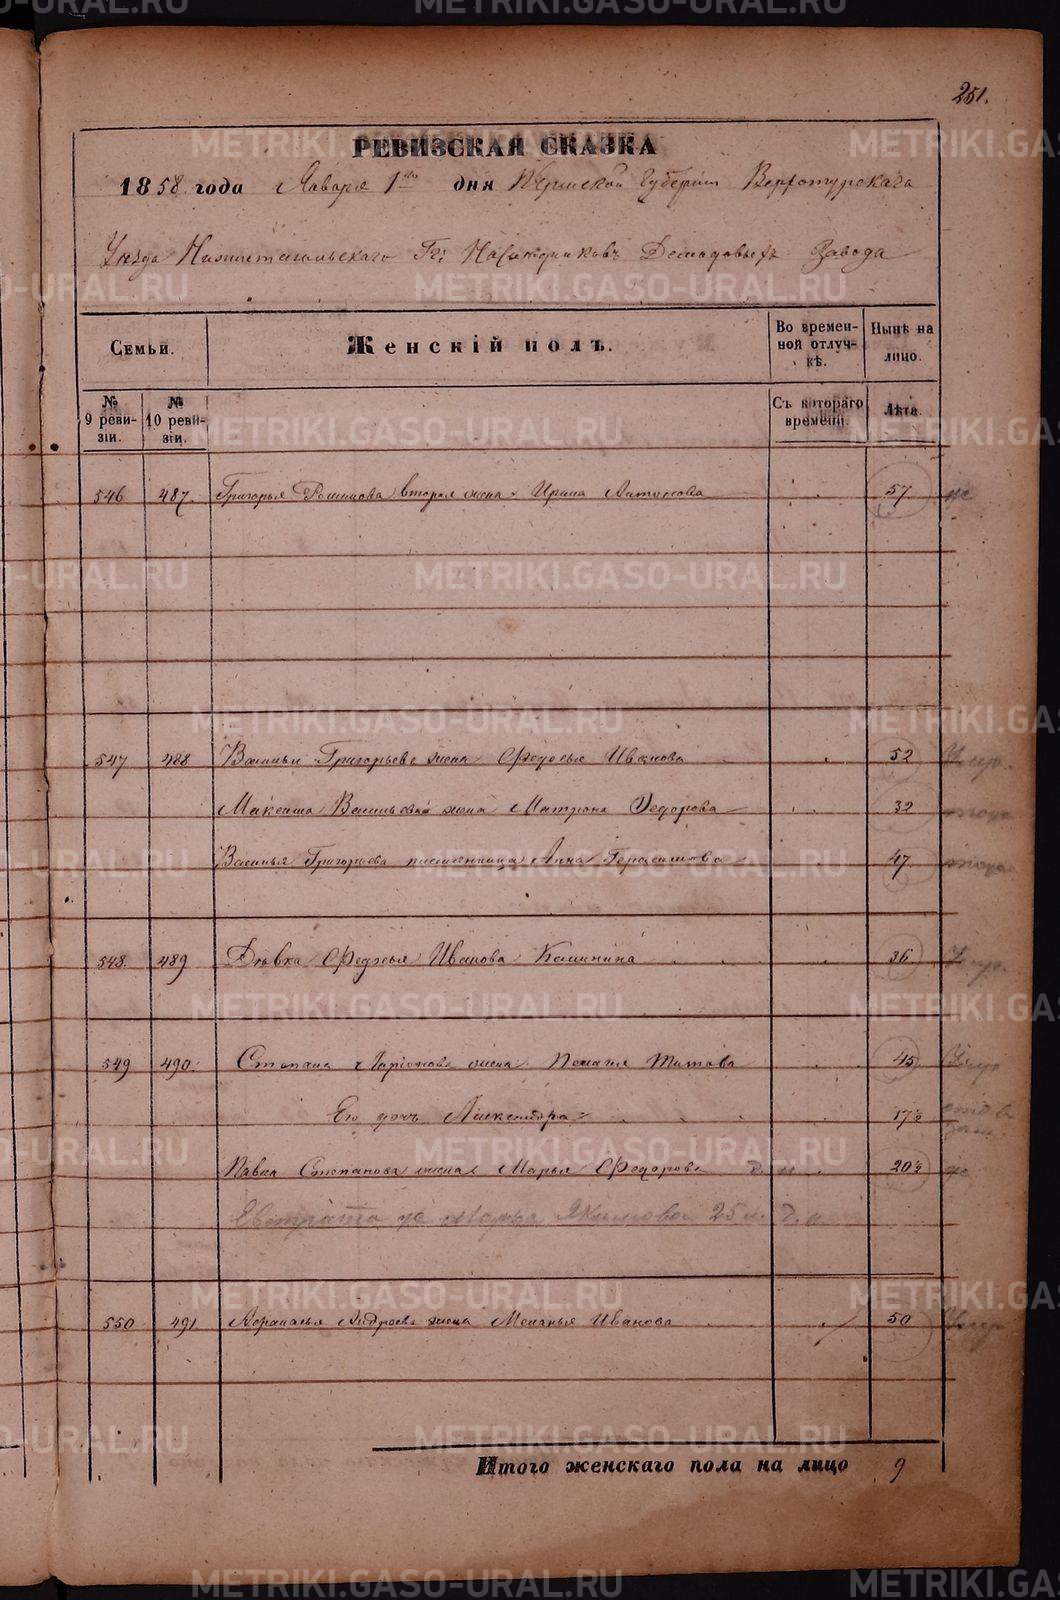 251.
РЕВИЗСКАЯ СКАЗКА
1858 года Января 1го дня Пермской Губернии Верхотурскаго
Уезда Нижнетагильскаго Гг. Наследниковъ Демидовыхъ Завода
Семьи. Женскій полъ. Во временной отлучкѣ. Нынѣ на лицо.
№ 9 ревизіи. № 10 ревизіи. Съ котораго времени. Лѣта.
546 487. Григорья вторая жена Ирина Антонова 57
547 488 Василья Григорьева жена Федосья Иванова 52
Максима Васильева жена Матрона Федорова 32
Василья Григорьева племянница Анна Герасимова 47
548. 489 Дѣвка Федосья Иванова Калинина 36
549 490 Степана Ларіонова жена Пелагея Титова 45
Его дочь Александра 17½
Павла Степанова жена Марья Федорова 20½
Евстрата же Марья Якимова 25 л.
550 491 Афанасья Андреева жена Меланья Иванова 50
Итого женскаго пола на лицо 9
METRIKI.GASO-URAL.RU